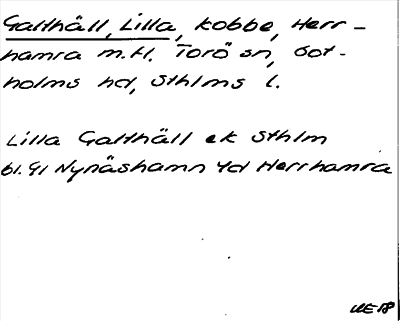 Galthäll, Lilla, kobbe, Herr-
hamra m.fl. Torö sn, Sot-
holms hd, Sthlms l.
Lilla Galthäll ek Sthlm
bl. 91 Nynäshamn 4d Herrhamra